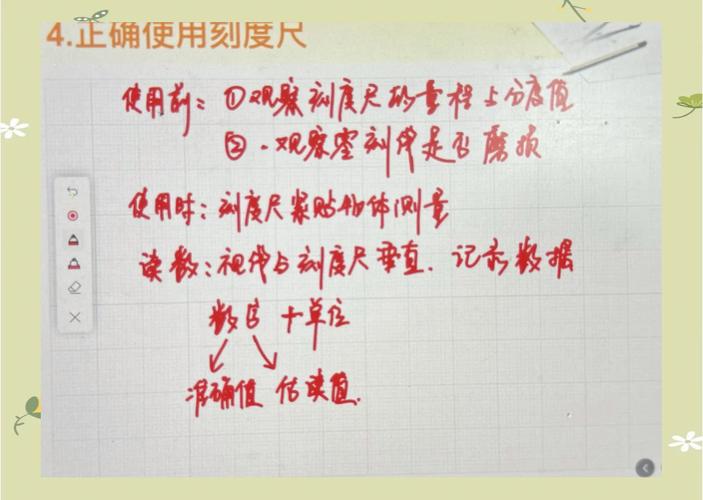 4.正确使用刻度尺
使用前：①观察刻度尺的量程与分度值
②.观察零刻线是否磨损
使用时：刻度尺紧贴物体测量
读数：视线与刻度尺垂直.记录数据
数值+单位
准确值 估读值.